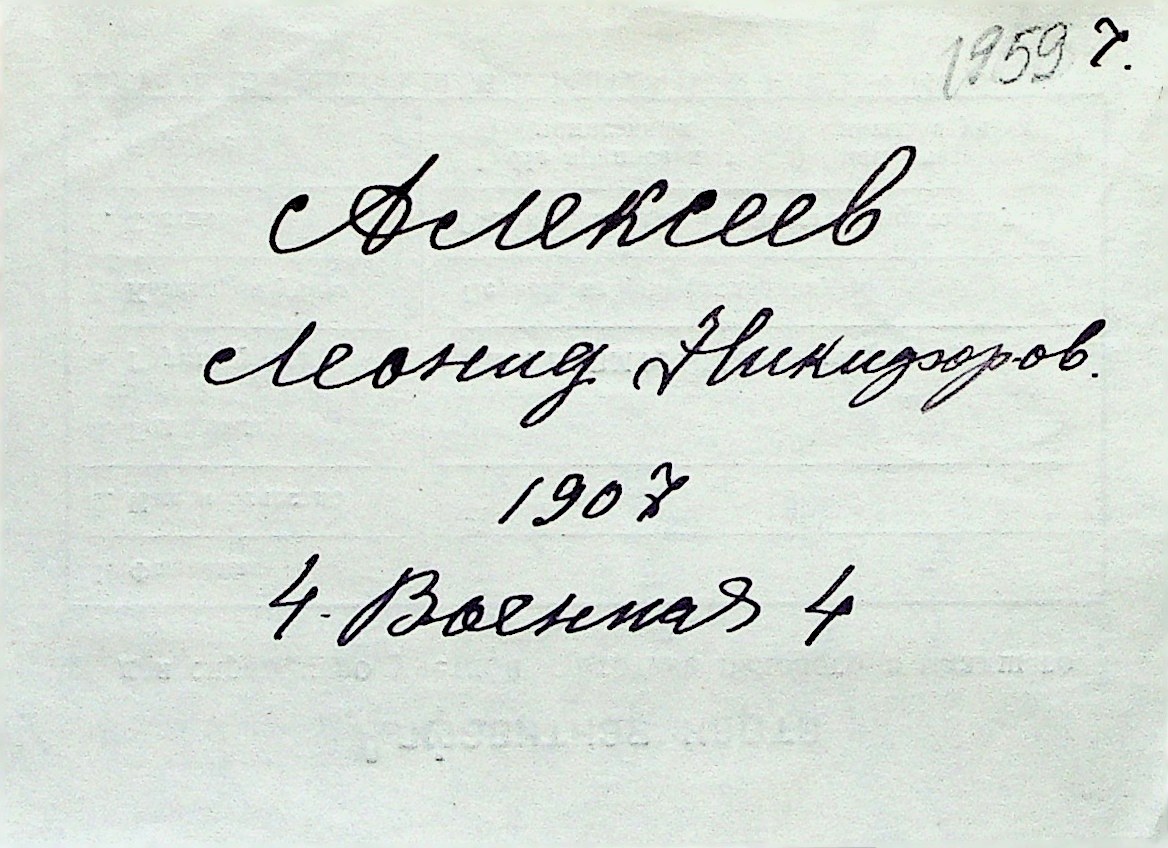 1959 г.
Алексеев
Леонид Никифоров.
1907
4. Военная 4